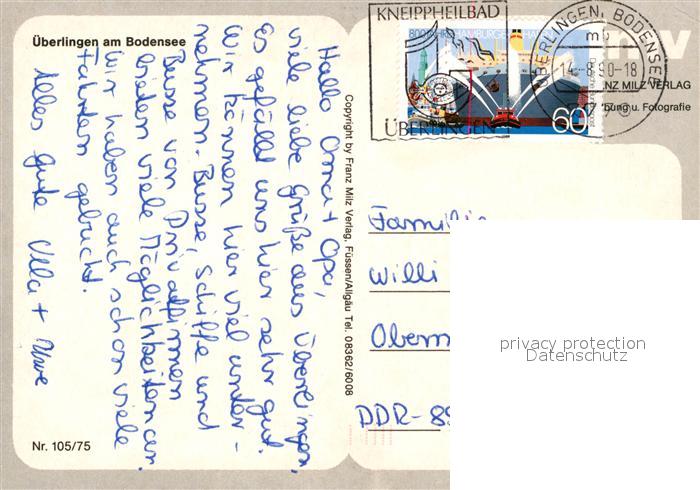 Überlingen am Bodensee
Hallo Oma + Opa,
viele liebe Grüße aus Überlingen,
Es gefällt uns hier sehr gut.
Wir können hier viel unter-
nehmen. Busse, Schiffe und
Busse von Privatfirmen
bieten viele Möglichkeiten an.
Wir haben auch schon viele
Fahrten gebucht.
Alles gute Ulla + Uwe
Nr. 105/75
Copyright by Franz Milz Verlag, Füssen/Allgäu Tel. 08362/6008
KNEIPPHEILBAD
ÜBERLINGEN
800 JAHRE HAMBURGER
60
ÜBERLINGEN, BODENSEE
mb
-18
mv
NZ MILZ VERLAG
bung u. Fotografie
Familie
Willi
Oberm
DDR-89
privacy protection
Datenschutz